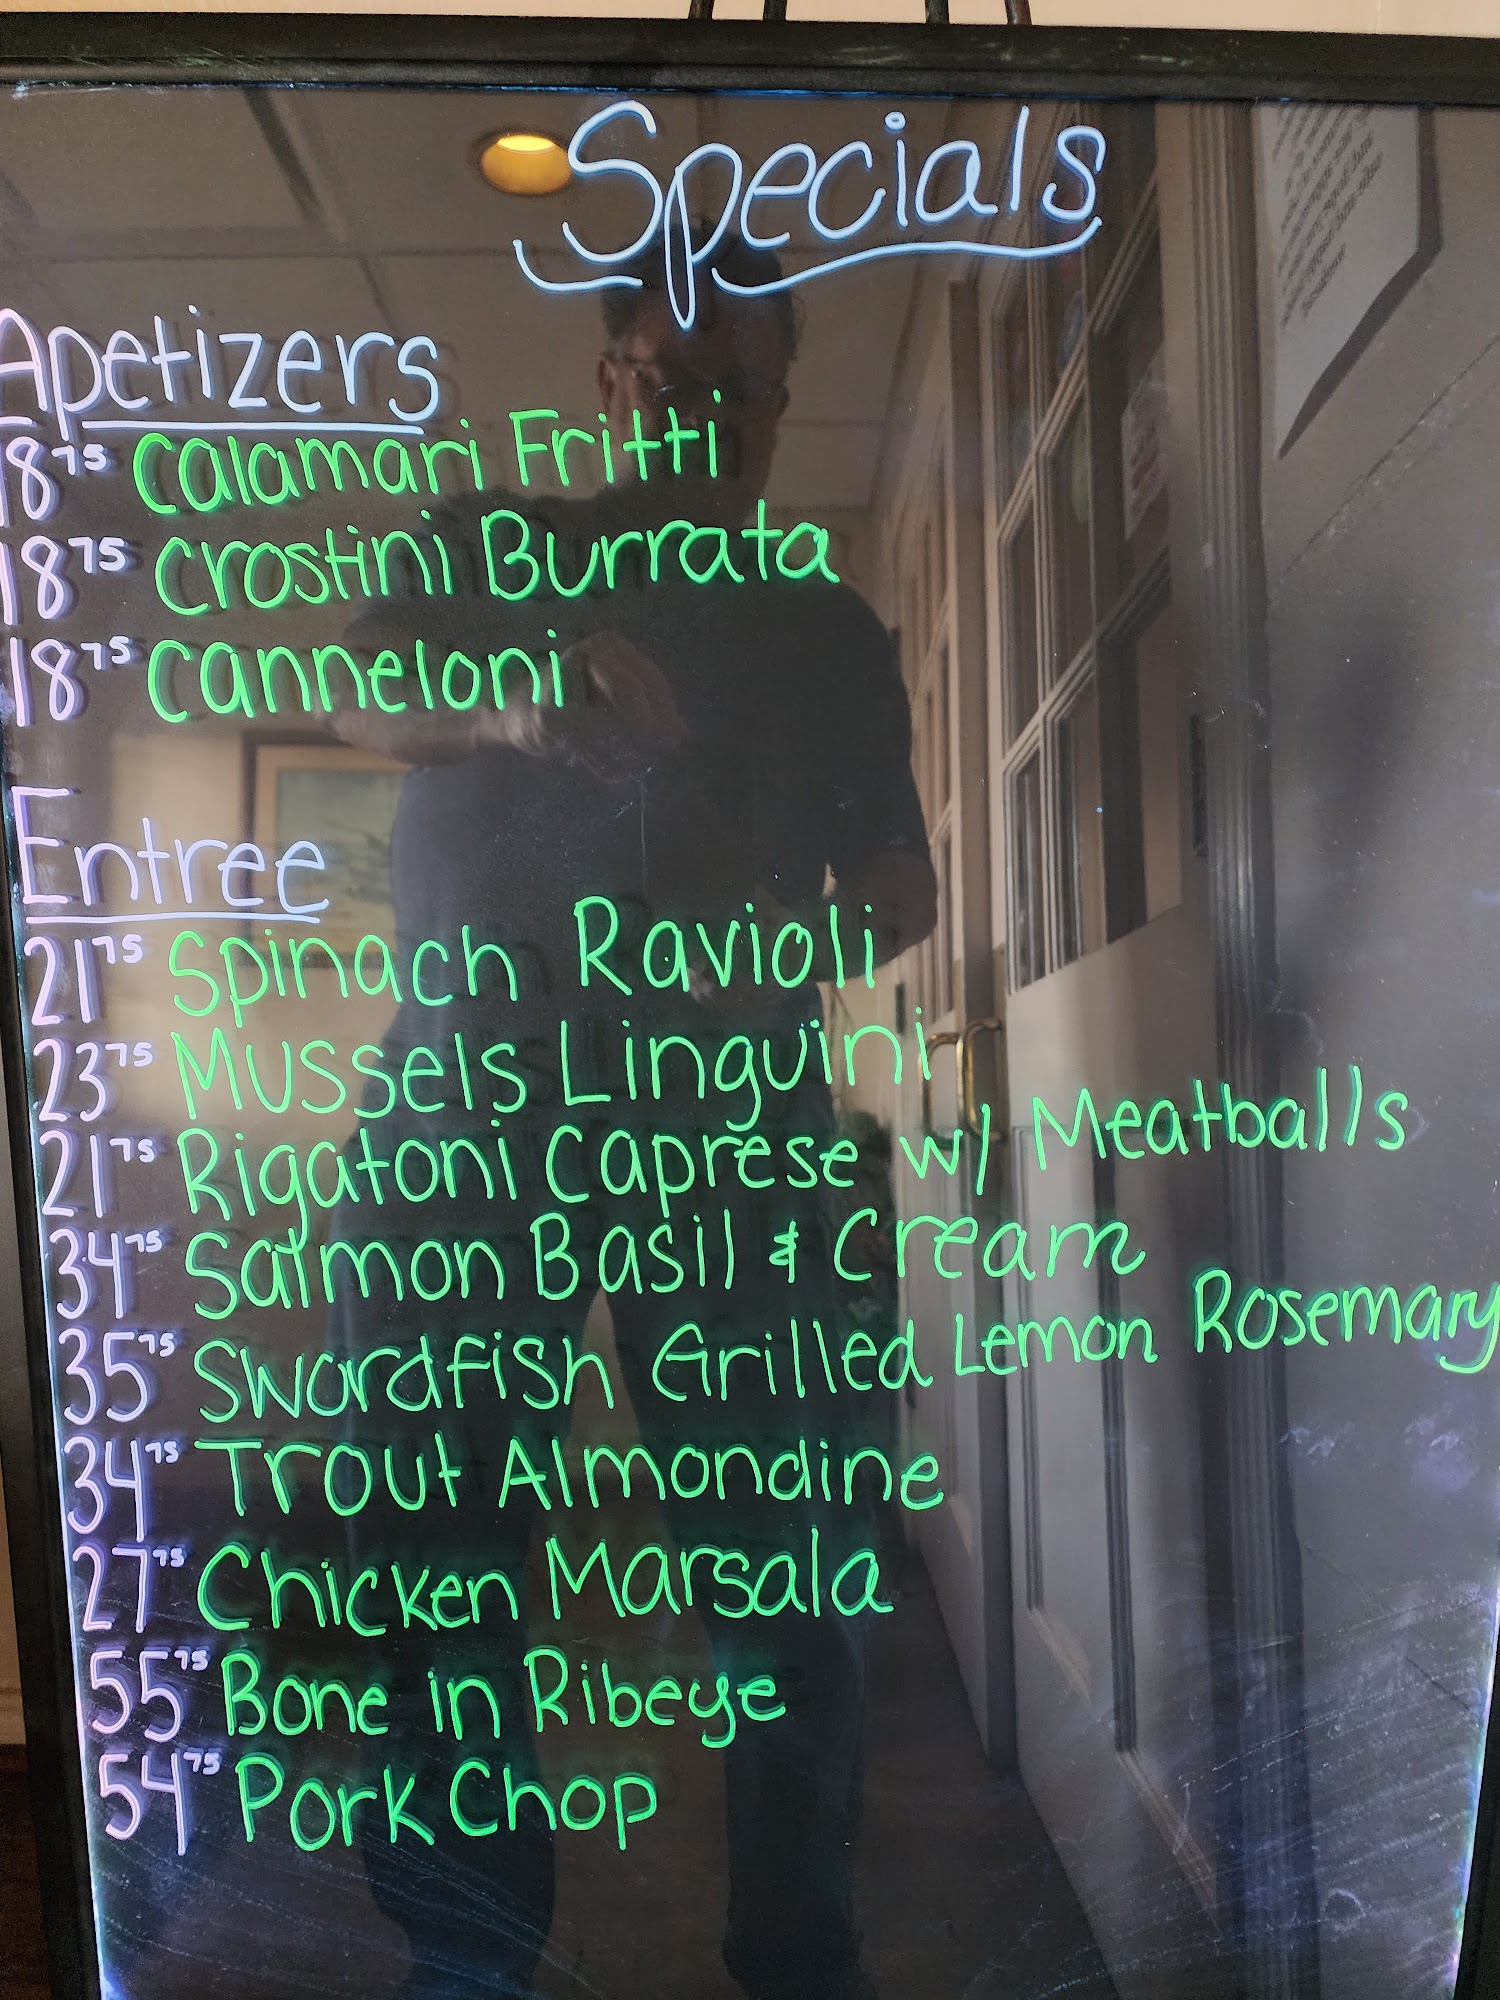 Specials
Apetizers
18 75 Calamari Fritti
18 75 Crostini Burrata
18 75 Canneloni
Entree
21 75 Spinach Ravioli
23 75 Mussels Linguini
21 75 Rigatoni Caprese w/ Meatballs
34 75 Salmon Basil & Cream
35 75 Swordfish Grilled Lemon Rosemary
34 75 Trout Almondine
27 75 Chicken Marsala
55 75 Bone in Ribeye
54 75 Pork Chop